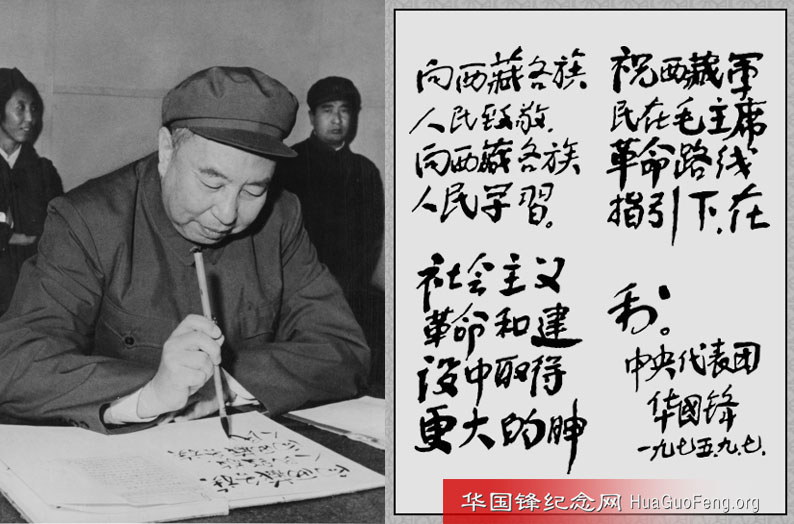 向西藏各族
人民致敬.
向西藏各族
人民学習。
祝西藏軍
民在毛主席
革命路线
指引下,在
社会主义
革命和建
设中取得
更大的胜
利。
中央代表团
华國锋
一九七五.九.七.
华国锋纪念网 HuaGuoFeng.org